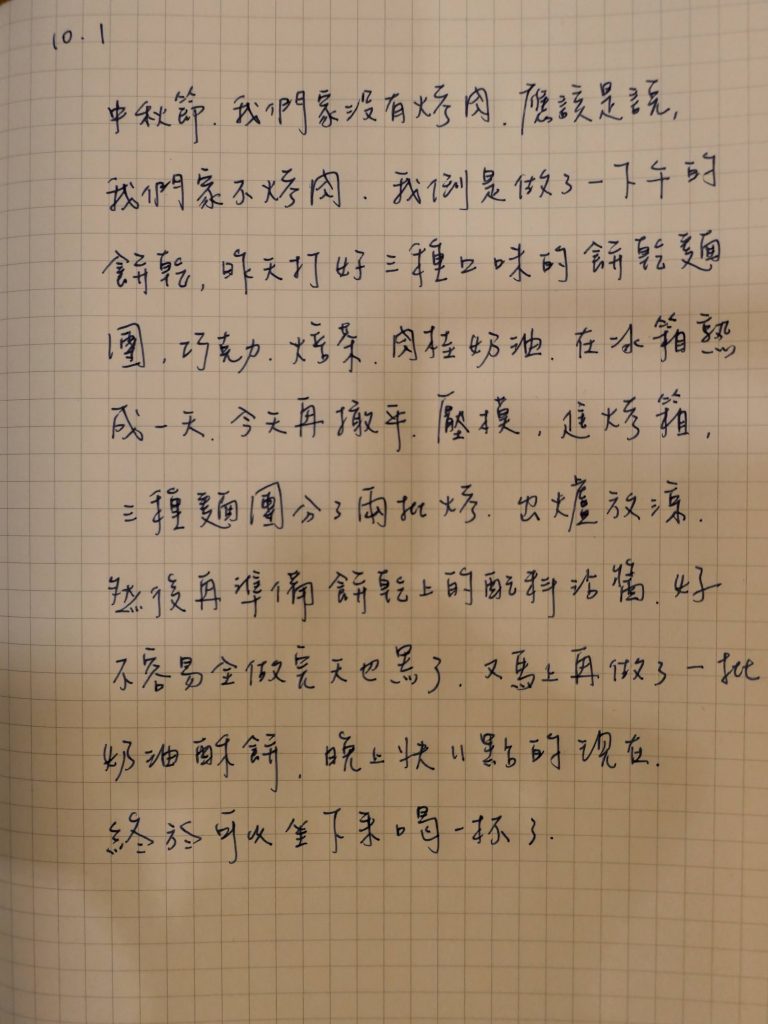 10.1
中秋節.我們家沒有烤肉.應該是說,
我們家不烤肉.我倒是做了一下午的
餅乾,昨天打好三種口味的餅乾麵
團,巧克力.焙茶.肉桂奶油.在冰箱熟
成一天.今天再撖平.壓模,進烤箱,
三種麵團分了兩批烤.出爐放涼.
然後再準備餅乾上的配料沾醬.好
不容易全做完天也黑了.又馬上再做了一批
奶油酥餅.晚上快11點的現在.
終於可以坐下來喝一杯了.